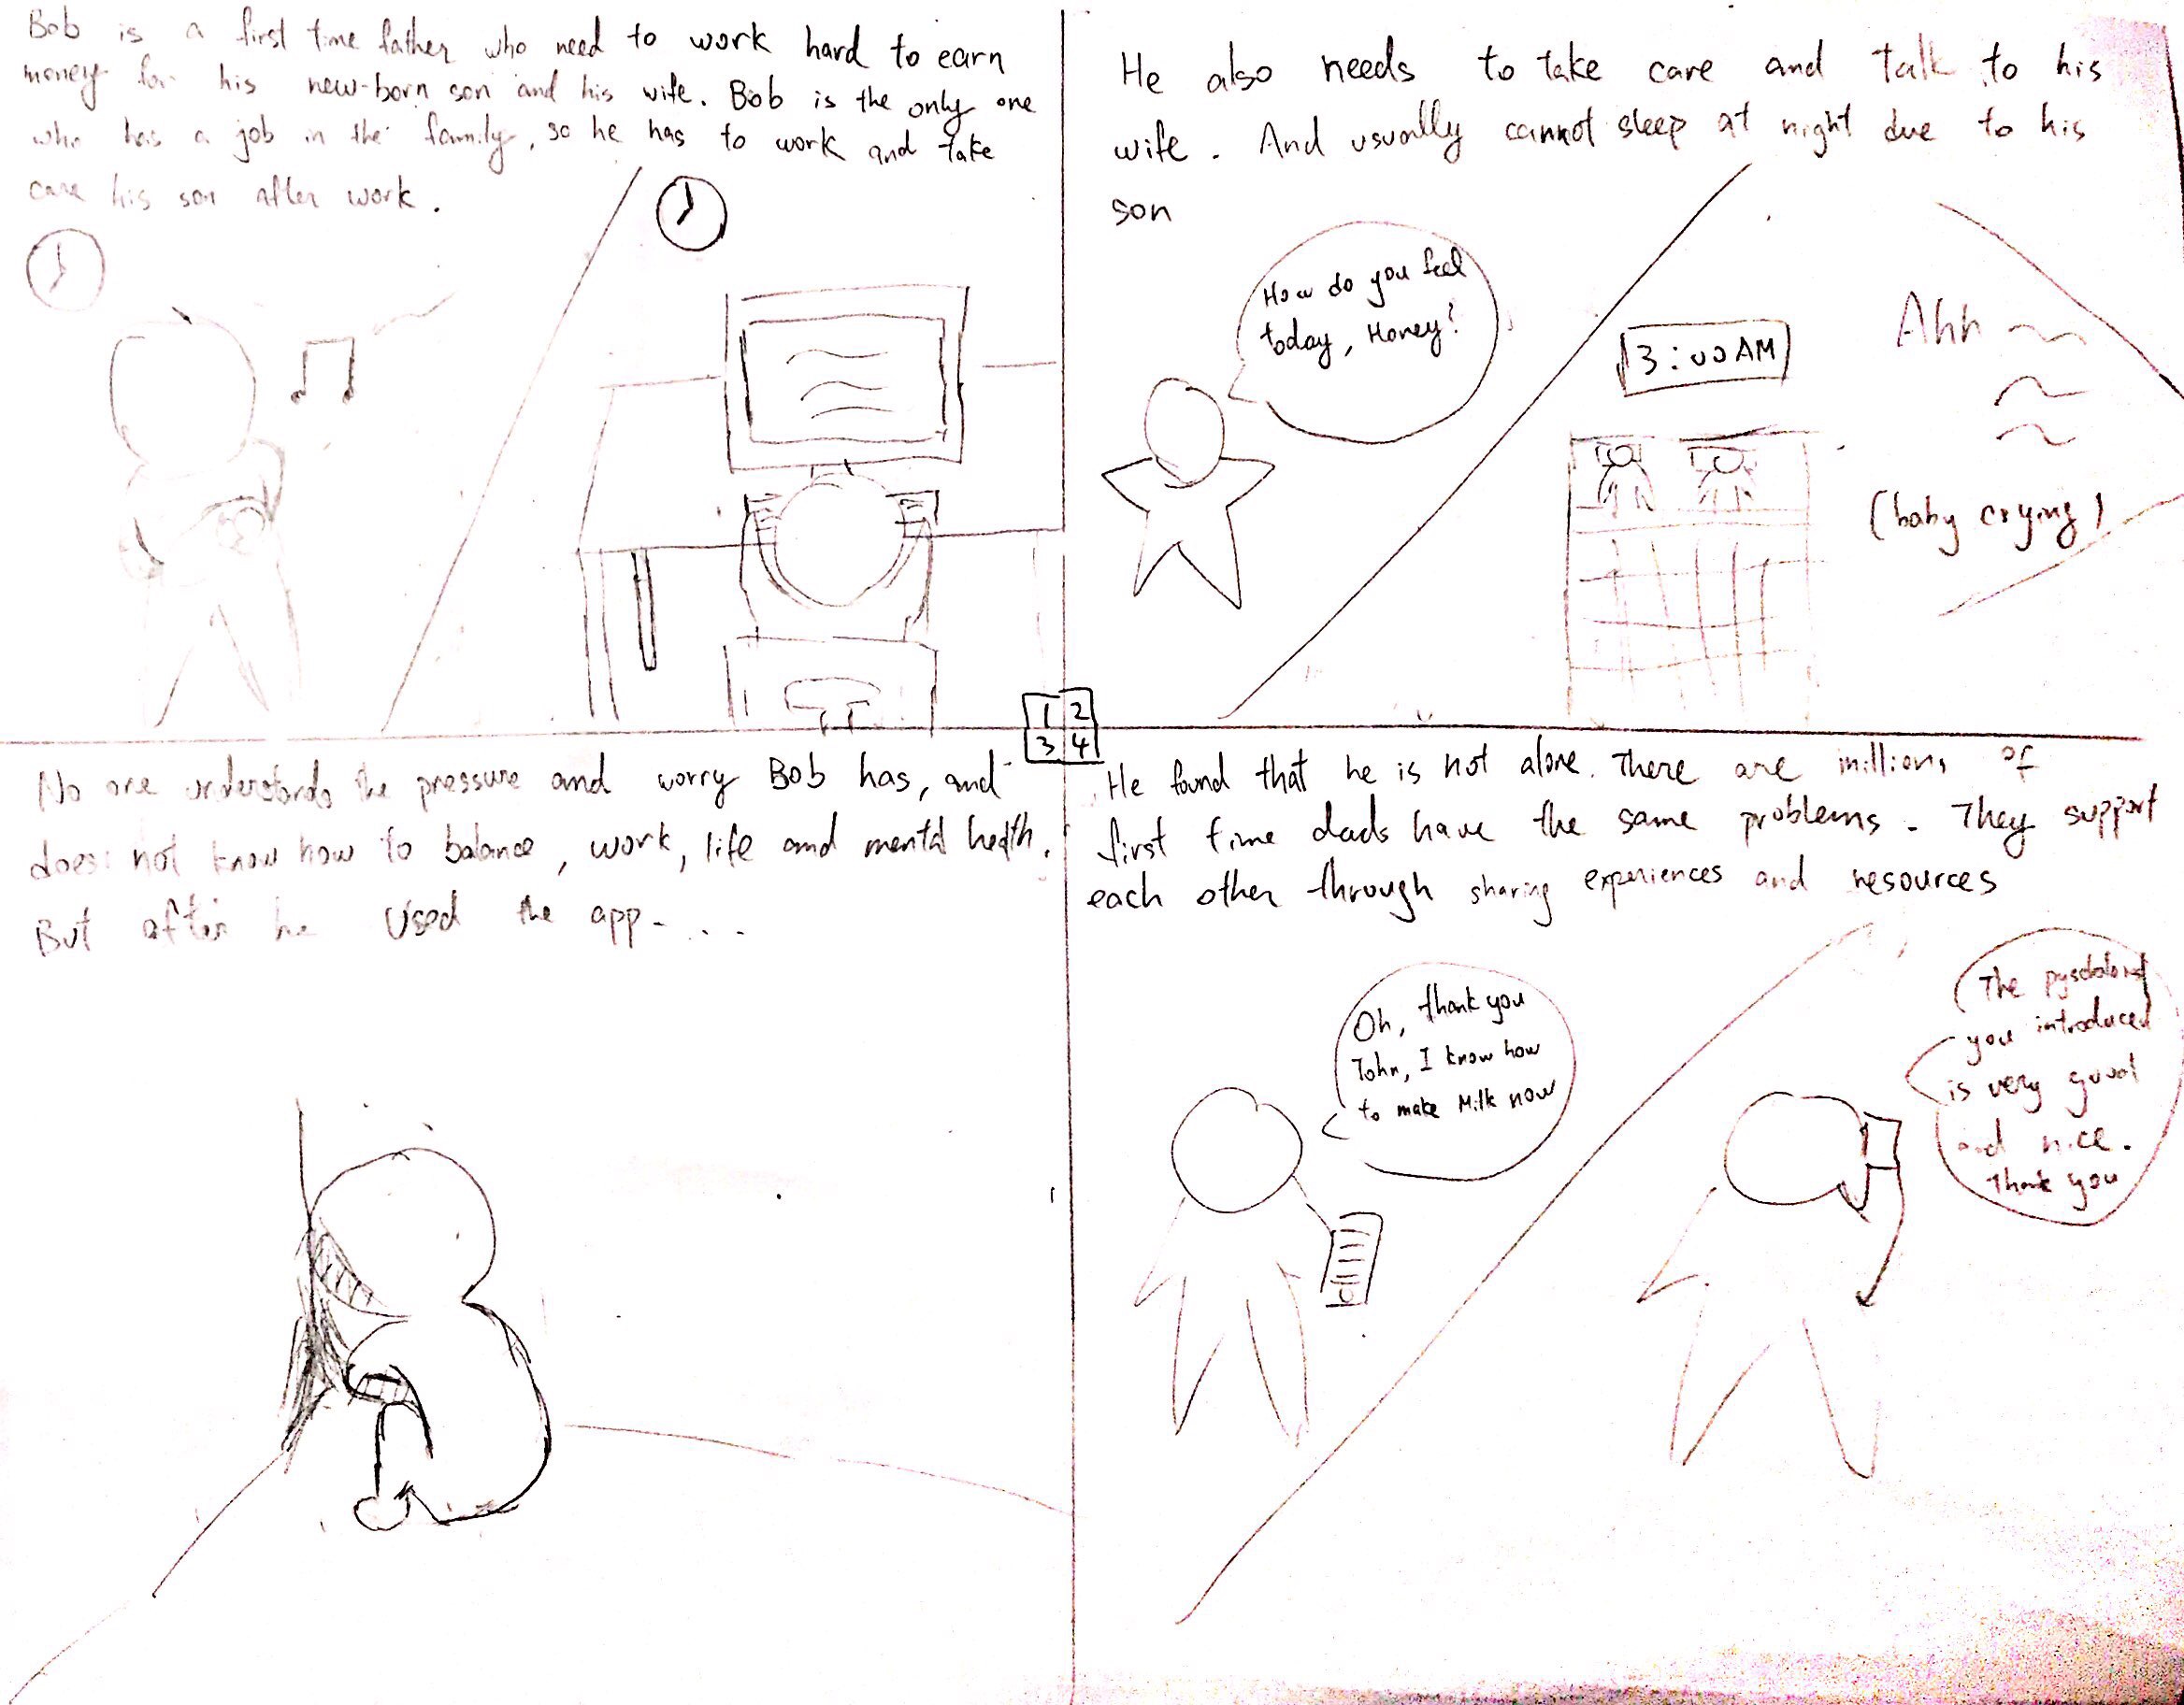 Bob is a first time father who need to work hard to earn
money for his new-born son and his wife. Bob is the only one
who has a job in the family, so he has to work and take
care his son after work.
He also needs to take care and talk to his
wife. And usually cannot sleep at night due to his
son
How do you feel
today, Honey?
3:00AM
Ahh
(baby crying)
1 2
3 4
No one understands the pressure and worry Bob has, and
does not know how to balance, work, life and mental health.
But after he used the app....
He found that he is not alone. There are millions of
first time dads have the same problems. They support
each other through sharing experiences and resources
Oh, thank you
John, I know how
to make Milk now
The
you introduced
is very good
and nice.
Thank you